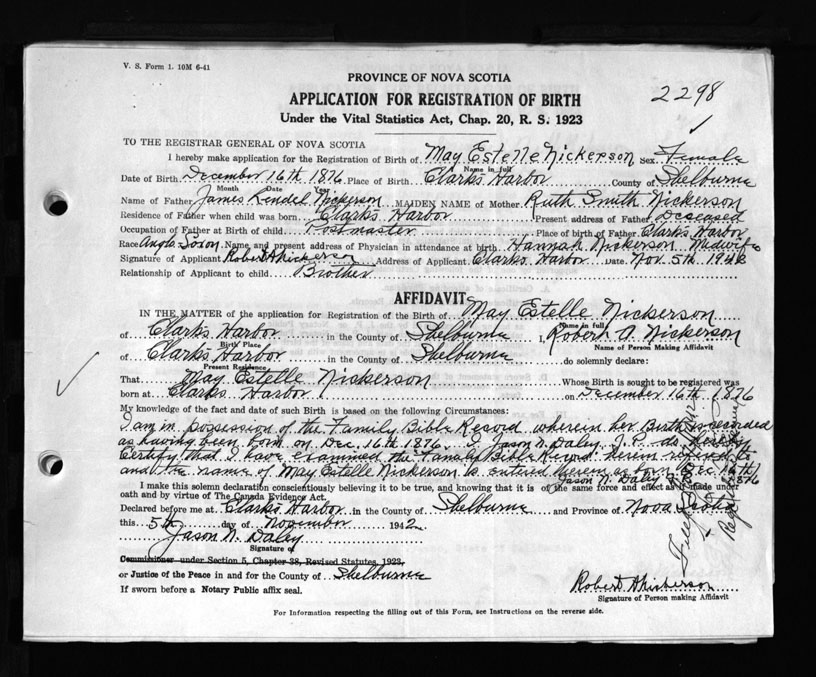 V. S. Form 1. 10M 6-41
PROVINCE OF NOVA SCOTIA
2298
APPLICATION FOR REGISTRATION OF BIRTH
Under the Vital Statistics Act, Chap. 20, R. S. 1923
TO THE REGISTRAR GENERAL OF NOVA SCOTIA
I hereby make application for the Registration of Birth of May Estelle Nickerson Sex Female
Name in full
Date of Birth December 16th 1876 Place of Birth Clarks Harbor County of Shelburne
Month Date Year
Name of Father James Kendel Nickerson MAIDEN NAME of Mother Ruth Smith Nickerson
Residence of Father when child was born Clarks Harbor Present address of Father Deceased
Occupation of Father at Birth of child Postmaster Place of birth of Father Clarks Harbor
Race Anglo-Saxon Name and present address of Physician in attendance at birth Hannah Nickerson Midwife
Signature of Applicant Robert A Nickerson Address of Applicant Clarks Harbor Date Nov. 5th 1942
Relationship of Applicant to child Brother
AFFIDAVIT
IN THE MATTER of the application for Registration of the Birth of May Estelle Nickerson
Name in full
of Clarks Harbor in the County of Shelburne I, Robert A. Nickerson
Birth Place Name of Person Making Affidavit
of Clarks Harbor in the County of Shelburne do solemnly declare:
Present Residence
That May Estelle Nickerson Whose Birth is sought to be registered was
born at Clarks Harbor on December 16th 1876
My knowledge of the fact and date of such Birth is based on the following Circumstances:
I am in possession of the Family Bible Record wherein her Birth is recorded
as having been born on Dec. 16th 1876. I Jason N. Daley J.P. do hereby
Certify that I have examined the Family Bible Record herein refered to
and the name of May Estelle Nickerson is entered therein as born Dec 16th 1876
Jason N. Daley J.P.
I make this solemn declaration conscientiously believing it to be true, and knowing that it is of the same force and effect as if made under
oath and by virtue of The Canada Evidence Act.
Declared before me at Clarks Harbor in the County of Shelburne and Province of Nova Scotia
this 5th day of November 1942
Jason N. Daley
Signature of
Commissioner under Section 5, Chapter 38, Revised Statutes, 1923,
or Justice of the Peace in and for the County of Shelburne
If sworn before a Notary Public affix seal.
Robert A Nickerson
Signature of Person making Affidavit
For Information respecting the filling out of this Form, see Instructions on the reverse side.